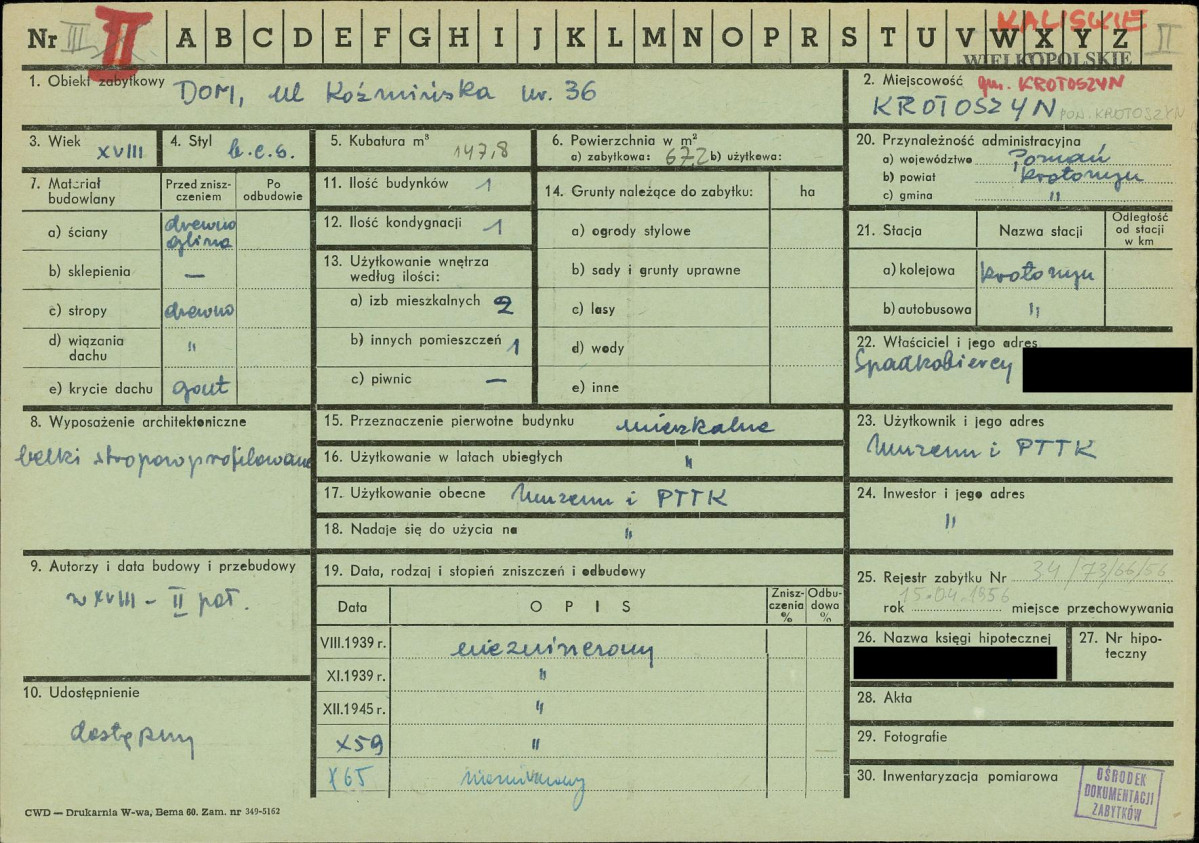 Nr III II A B C D E F G H I J K L M N O P R S T U V W X Y Z II
KALISKIE
WIELKOPOLSKIE
1. Obiekt zabytkowy DOM, ul Koźmińska nr. 36
2. Miejscowość gm. KROTOSZYN
KROTOSZYN POW. KROTOSZYN
3. Wiek XVIII
4. Styl b.c.s.
5. Kubatura m³ 147,8
6. Powierzchnia w m²
a) zabytkowa: 67,2 b) użytkowa:
20. Przynależność administracyjna
a) województwo Poznań
b) powiat Krotoszyn
c) gmina "
7. Materiał budowlany
Przed zniszczeniem
Po odbudowie
a) ściany drewno glina
b) sklepienia —
c) stropy drewno
d) wiązania dachu "
e) krycie dachu gont
11. Ilość budynków 1
12. Ilość kondygnacji 1
13. Użytkowanie wnętrza
według ilości:
a) izb mieszkalnych 2
b) innych pomieszczeń 1
c) piwnic —
14. Grunty należące do zabytku: ha
a) ogrody stylowe
b) sady i grunty uprawne
c) lasy
d) wody
e) inne
21. Stacja Nazwa stacji Odległość od stacji w km
a) kolejowa Krotoszyn
b) autobusowa "
22. Właściciel i jego adres
Spadkobiercy
8. Wyposażenie architektoniczne
belki stropowe profilowane
15. Przeznaczenie pierwotne budynku mieszkalne
16. Użytkowanie w latach ubiegłych "
17. Użytkowanie obecne Muzeum i PTTK
18. Nadaje się do użycia na "
23. Użytkownik i jego adres
Muzeum i PTTK
24. Inwestor i jego adres
"
9. Autorzy i data budowy i przebudowy
w XVIII - II poł.
19. Data, rodzaj i stopień zniszczeń i odbudowy
Data OPIS Zniszczenia % Odbudowa %
VIII.1939 r. niezniszczony
XI.1939 r. "
XII.1945 r. "
X 59 "
X 65
25. Rejestr zabytku Nr 34/73/66/56
rok 15.04.1956 miejsce przechowywania
26. Nazwa księgi hipotecznej
27. Nr hipoteczny
10. Udostępnienie
dostępny
28. Akta
29. Fotografie
30. Inwentaryzacja pomiarowa
OŚRODEK
DOKUMENTACJI
ZABYTKÓW
CWD — Drukarnia W-wa, Bema 60. Zam. nr 349-5162